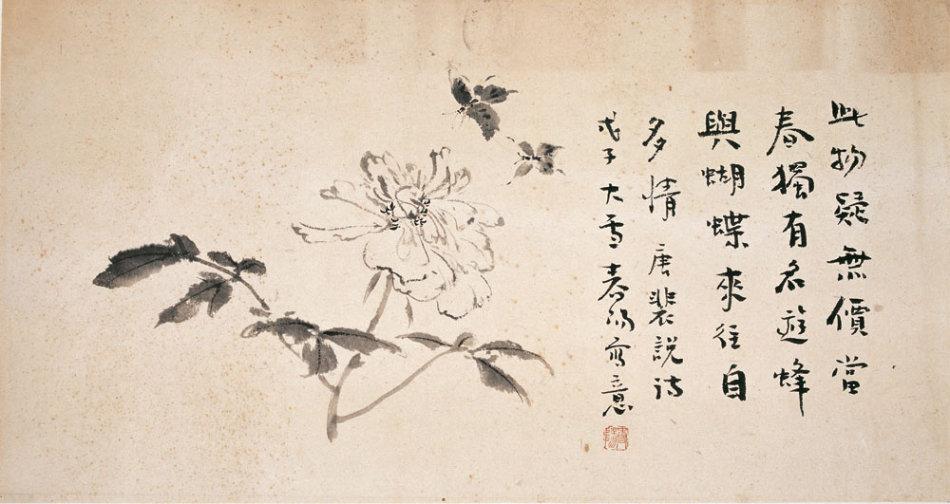 此物疑無價當
春獨有名遊蜂
與蝴蝶來往自
多情 唐裴說詩
戊子大雪寫意